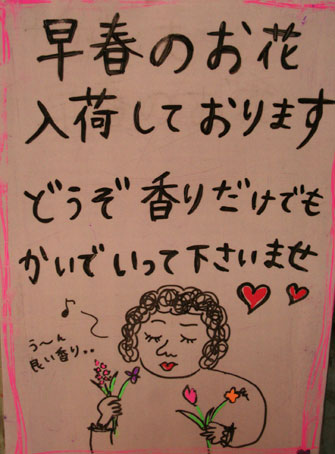 早春のお花
入荷しております
どうぞ香りだけでも
かいでいって下さいませ
う〜ん
良い香り..